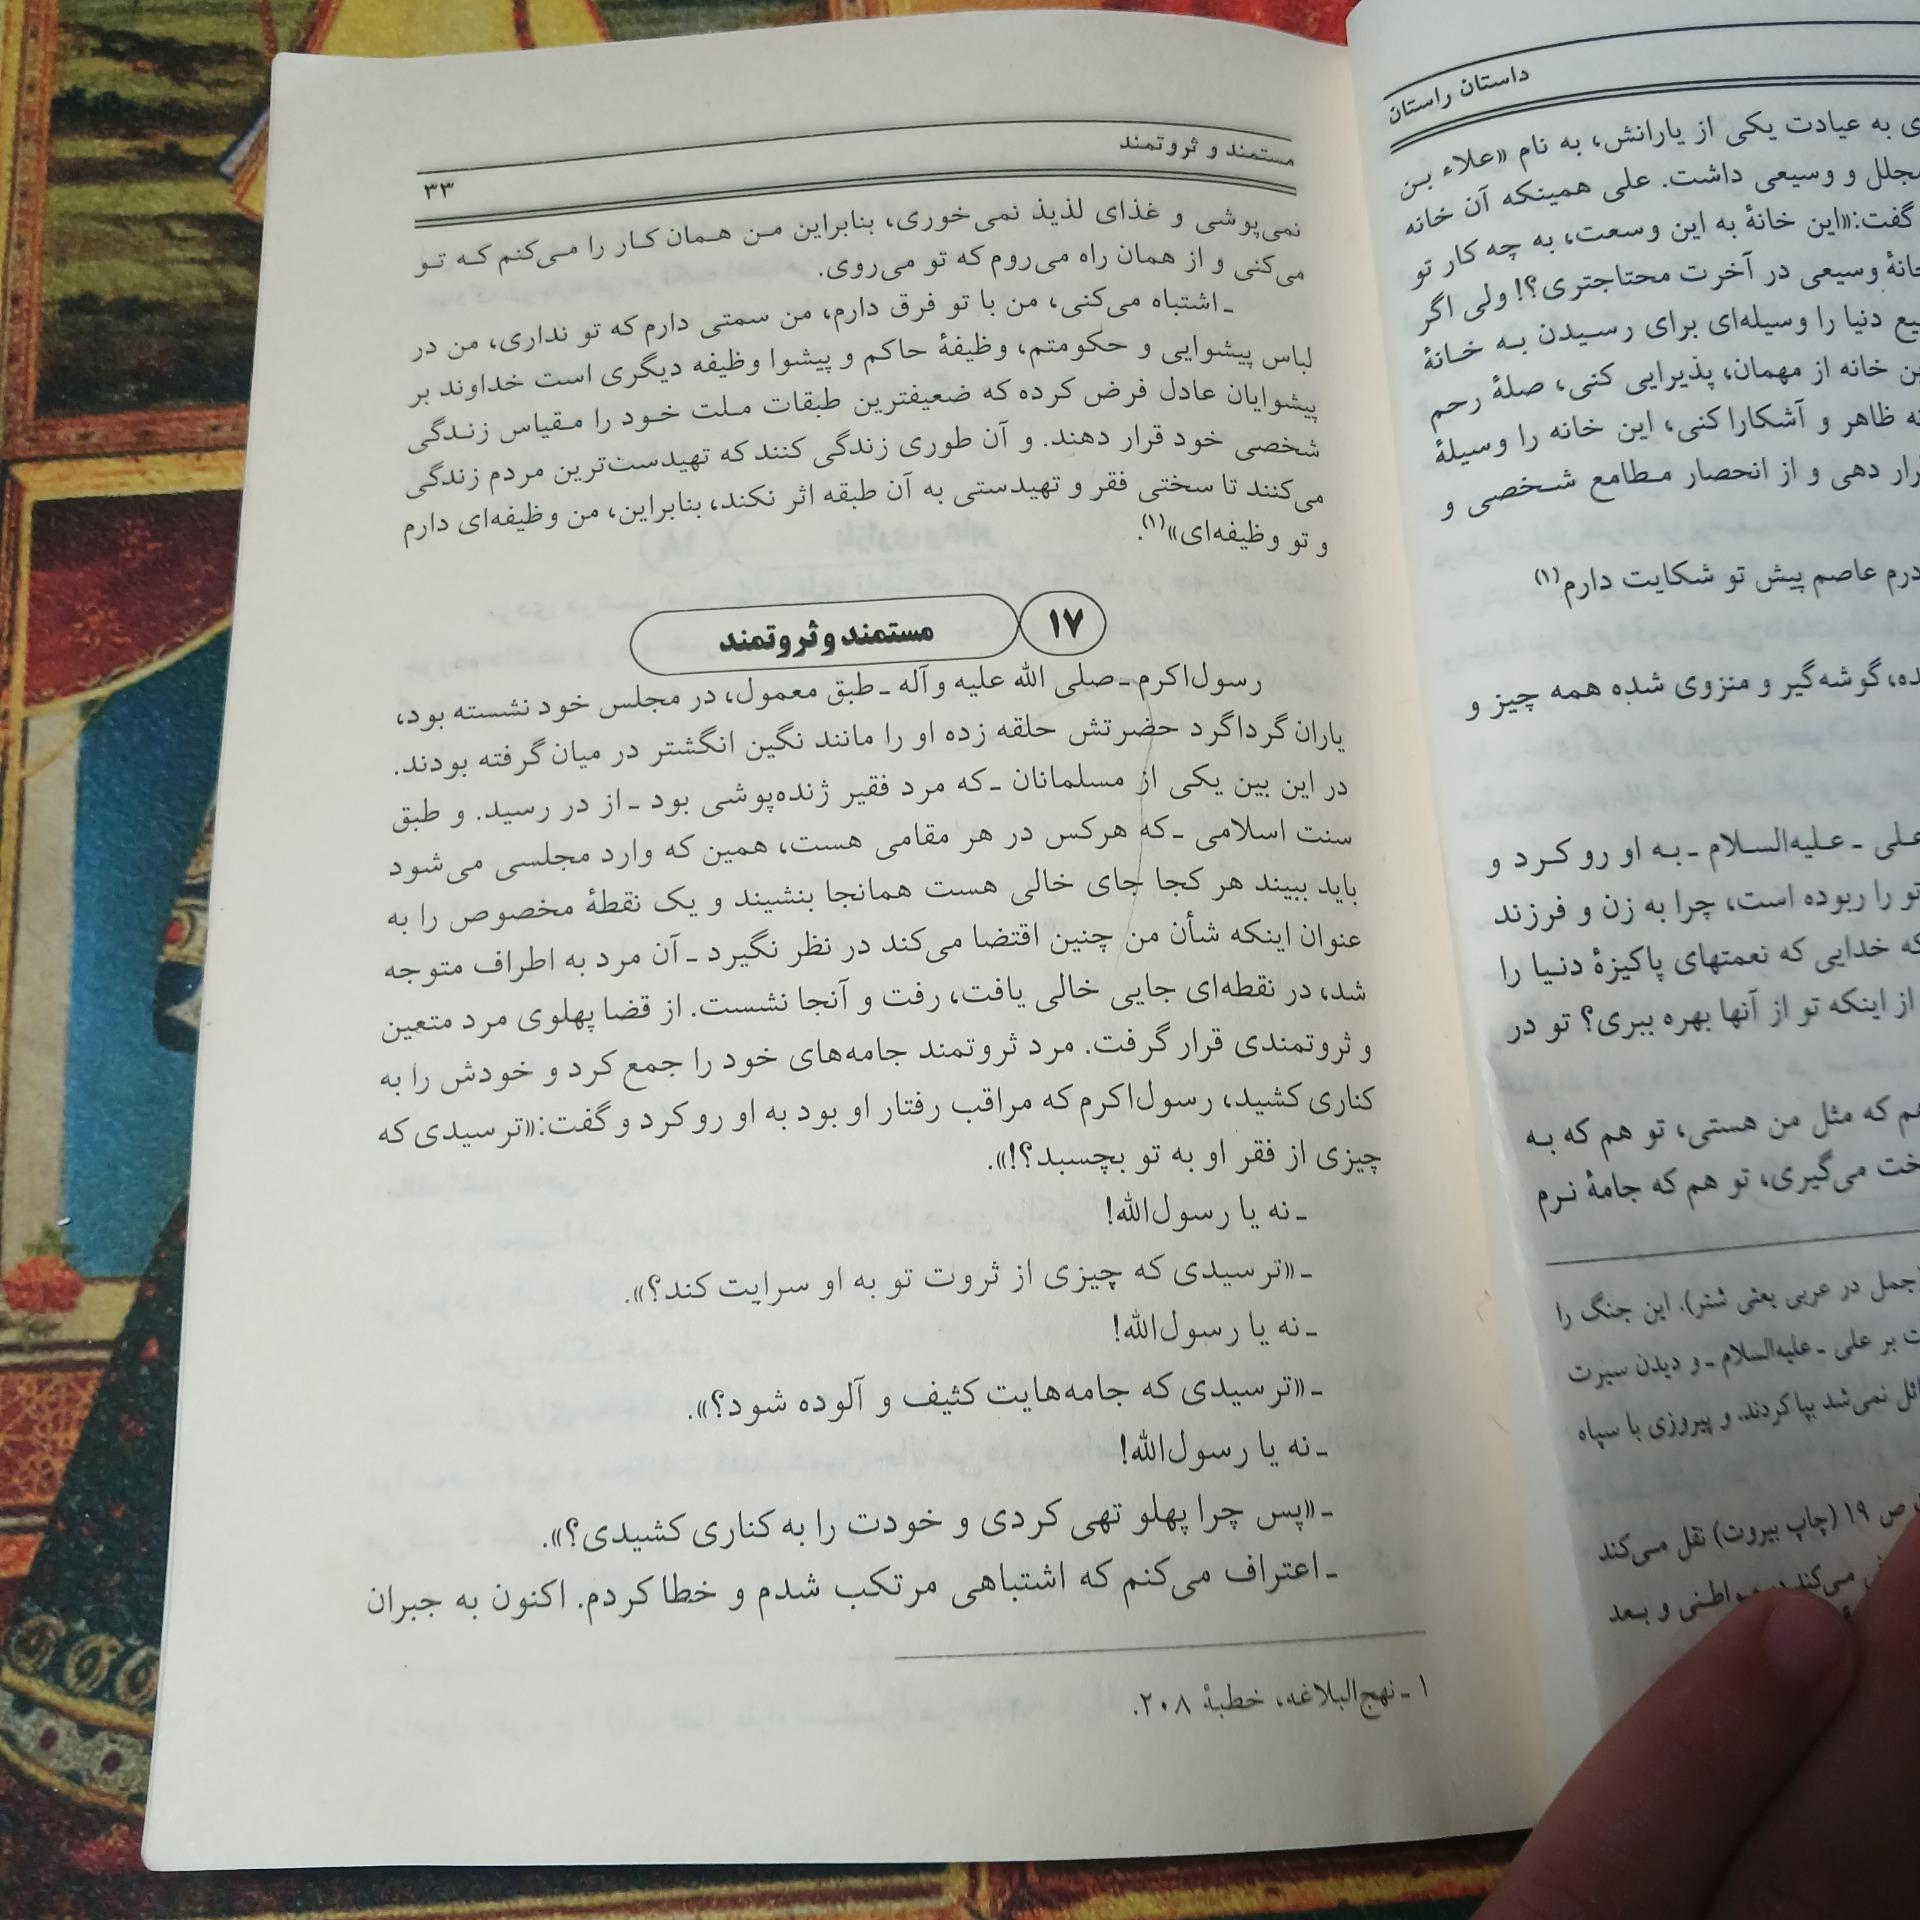 داستان راستان
ی به عیادت یکی از یارانش، به نام «علاء بن
مجلل و وسیعی داشت. علی همینکه آن خانه
گفت:«این خانهٔ به این وسعت، به چه کار تو
خانهٔ وسیعی در آخرت محتاجتری؟! ولی اگر
دنیا را وسیله‌ای برای رسیدن به خانهٔ
خانه از مهمان، پذیرایی کنی، صلهٔ رحم
ظاهر و آشکارا کنی، این خانه را وسیلهٔ
دهی و از انحصار مطامع شخصی و
عاصم پیش تو شکایت دارم(۱)
گوشه‌گیر و منزوی شده همه چیز و
علی ـ علیه‌السلام ـ به او رو کرد و
تو را ربوده است، چرا به زن و فرزند
که خدایی که نعمتهای پاکیزهٔ دنیا را
از اینکه تو از آنها بهره ببری؟ تو در
که مثل من هستی، تو هم که به
می‌گیری، تو هم که جامهٔ نرم
(جمل در عربی یعنی شتر). این جنگ را
بر علی ـ علیه‌السلام ـ و دیدن سیرت
نمی‌شد بپا کردند. و پیروزی با سپاه
ص ۱۹ (چاپ بیروت) نقل می‌کند
می‌کند و بعد
مستمند و ثروتمند
۳۳
نمی‌پوشی و غذای لذیذ نمی‌خوری، بنابراین من همان کار را می‌کنم که تو
می‌کنی و از همان راه می‌روم که تو می‌روی.
ـ اشتباه می‌کنی، من با تو فرق دارم، من سمتی دارم که تو نداری، من در
لباس پیشوایی و حکومتم، وظیفهٔ حاکم و پیشوا وظیفه دیگری است خداوند بر
پیشوایان عادل فرض کرده که ضعیفترین طبقات ملت خود را مقیاس زندگی
شخصی خود قرار دهند. و آن طوری زندگی کنند که تهیدست‌ترین مردم زندگی
می‌کنند تا سختی فقر و تهیدستی به آن طبقه اثر نکند، بنابراین، من وظیفه‌ای دارم
و تو وظیفه‌ای»(۱).
۱۷ مستمند و ثروتمند
رسول‌اکرم ـ صلی الله علیه و آله ـ طبق معمول، در مجلس خود نشسته بود،
یاران گرداگرد حضرتش حلقه زده او را مانند نگین انگشتر در میان گرفته بودند.
در این بین یکی از مسلمانان ـ که مرد فقیر ژنده‌پوشی بود ـ از در رسید. و طبق
سنت اسلامی ـ که هرکس در هر مقامی هست، همین که وارد مجلسی می‌شود
باید ببیند هر کجا جای خالی هست همانجا بنشیند و یک نقطهٔ مخصوص را به
عنوان اینکه شأن من چنین اقتضا می‌کند در نظر نگیرد ـ آن مرد به اطراف متوجه
شد، در نقطه‌ای جایی خالی یافت، رفت و آنجا نشست. از قضا پهلوی مرد متعین
و ثروتمندی قرار گرفت. مرد ثروتمند جامه‌های خود را جمع کرد و خودش را به
کناری کشید، رسول‌اکرم که مراقب رفتار او بود به او رو کرد و گفت:«ترسیدی که
چیزی از فقر او به تو بچسبد؟!».
ـ نه یا رسول‌الله!
ـ «ترسیدی که چیزی از ثروت تو به او سرایت کند؟».
ـ نه یا رسول‌الله!
ـ «ترسیدی که جامه‌هایت کثیف و آلوده شود؟».
ـ نه یا رسول‌الله!
ـ «پس چرا پهلو تهی کردی و خودت را به کناری کشیدی؟».
ـ اعتراف می‌کنم که اشتباهی مرتکب شدم و خطا کردم. اکنون به جبران
۱ ـ نهج‌البلاغه، خطبهٔ ۲۰۸.